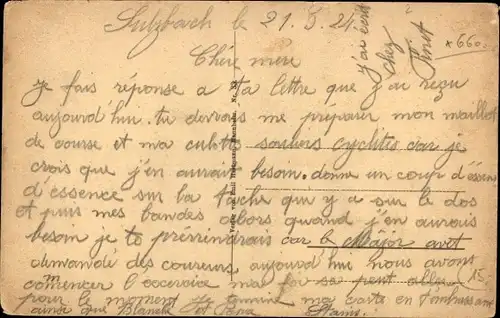 Sulzbach le 21.5.24.
Chère mère
Je fais réponse a ta lettre que j'ai reçu
aujourd'hui. tu devrais me préparer mon maillot
de course et ma culotte souliers cyclites car je
crois que j'en aurais besoin. donne un coup d'essen
d'essence sur la tache que y a sur le dos
et puis mes bandes alors quand j'en aurais
besoin je te préviendrais car le Major avet
demandé des coureurs, aujourd'hui nous avons
commencer l'exercice ma foi sa peut aller
pour le moment je termine ma carte en t'embrassant
ainsi que Blanche et Papa
J'ai écrit
chez
Pinet
x660.
15